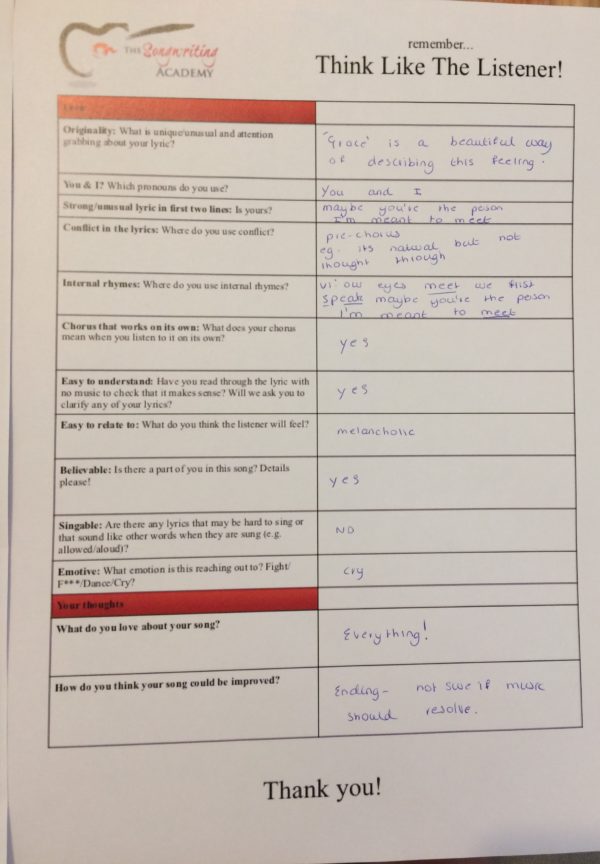 THE Songwriting
ACADEMY
remember...
Think Like The Listener!
Lyric
Originality: What is unique/unusual and attention
grabbing about your lyric?
'Grace' is a beautiful way
of describing this feeling.
You & I? Which pronouns do you use?
You and I
Strong/unusual lyric in first two lines: Is yours?
maybe you're the person
I'm meant to meet
Conflict in the lyrics: Where do you use conflict?
pre-chorus
eg. its natural but not
thought through
Internal rhymes: Where do you use internal rhymes?
V1: our eyes meet we first
speak maybe you're the person
I'm meant to meet
Chorus that works on its own: What does your chorus
mean when you listen to it on its own?
yes
Easy to understand: Have you read through the lyric with
no music to check that it makes sense? Will we ask you to
clarify any of your lyrics?
yes
Easy to relate to: What do you think the listener will feel?
melancholic
Believable: Is there a part of you in this song? Details
please!
yes
Singable: Are there any lyrics that may be hard to sing or
that sound like other words when they are sung (e.g.
allowed/aloud)?
NO
Emotive: What emotion is this reaching out to? Fight/
F***/Dance/Cry?
Cry
Your thoughts
What do you love about your song?
Everything!
How do you think your song could be improved?
Ending- not sure if music
should resolve.
Thank you!